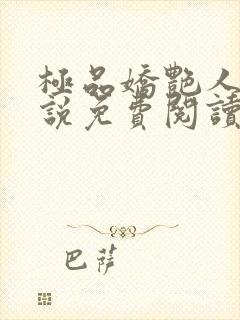 極品嬌艷人
說免費閱讀
巴薩